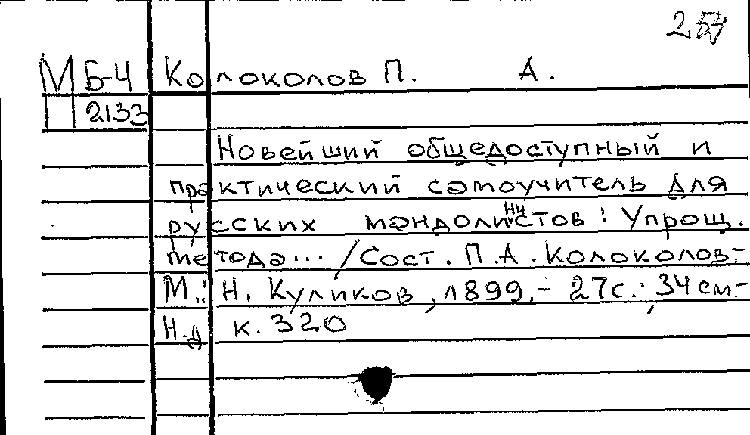 МБ-4 Колоколов П. А.
П 2133
Новейший общедоступный и
практический самоучитель для
русских мандолинистов: Упрощ.
метода... / Сост. П.А. Колоколов-
М.: Н. Куликов, 1899, - 27с.; 34см-
Н.д. к. 320